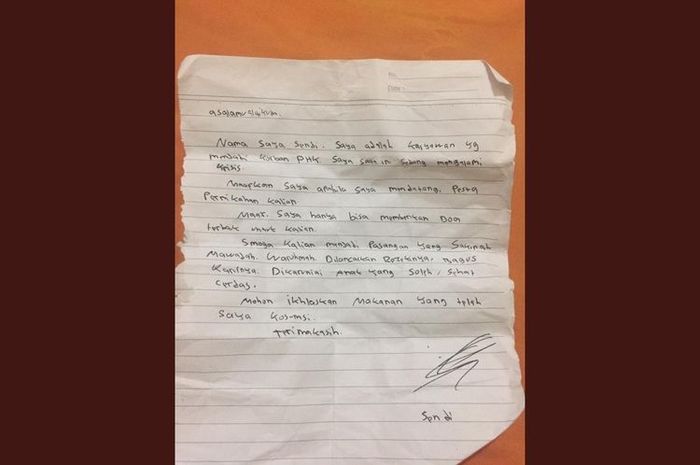 asalamualaikum.
Nama saya Sendi. Saya adalah karyawan yg
menjadi korban PHK saya saat in sedang mengalami
krisis.
Maafkan saya apabila saya mendatangi Pesta
Pernikahan kalian
Maaf. Saya hanya bisa memberikan Doa
terbaik untuk kalian.
Smoga kalian menjadi Pasangan yang Sakinah
Mawadah. Warohmah Dilancarkan Rezekinya, Bagus
Karirnya. Dikaruniai Anak yang Soleh, Sehat
Cerdas.
Mohon ikhlaskan Makanan yang telah
saya konsumsi.
Terimakasih.
Sendi